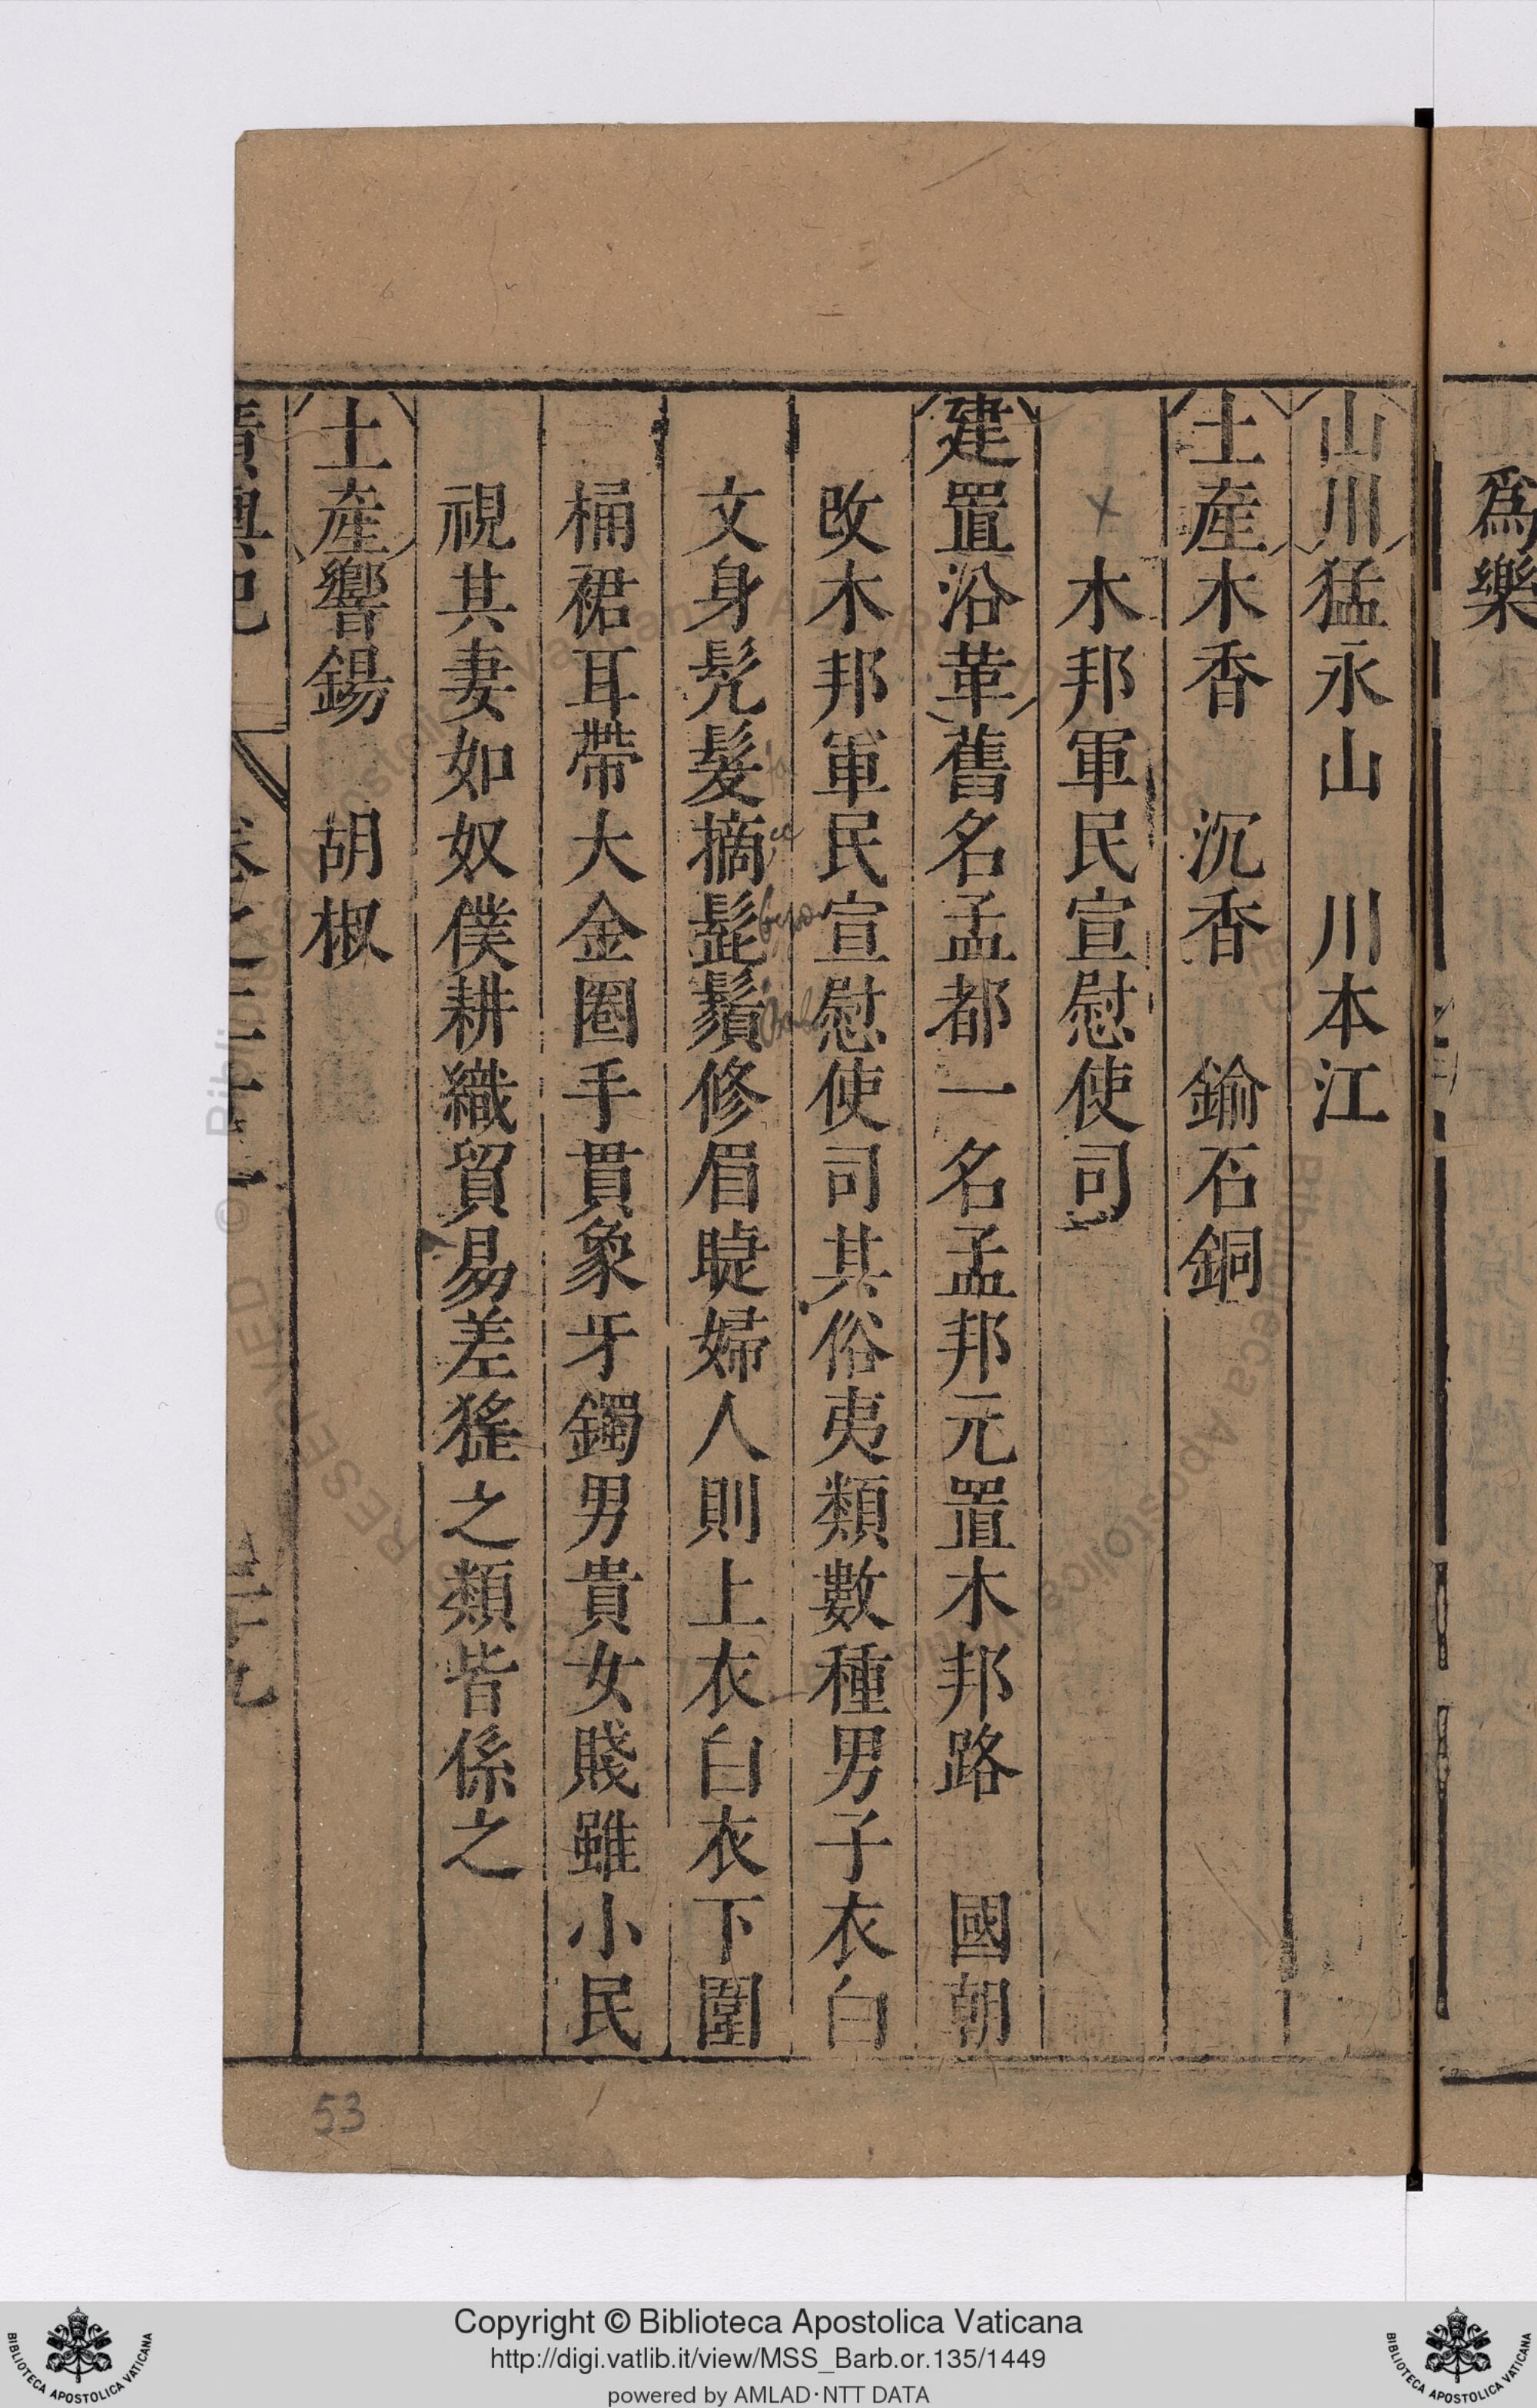 爲樂
山川猛永山　川本江
土產木香　沉香　鍮石銅
木邦軍民宣慰使司
建置沿革舊名孟都一名孟邦元置木邦路　國朝
改木邦軍民宣慰使司其俗夷類數種男子衣白
文身髠髮摘髭鬚修眉睫婦人則上衣白衣下圍
桶裙耳帶大金圈手貫象牙鐲男貴女賤雖小民
視其妻如奴僕耕織貿易差徭之類皆係之
土產響錫　胡椒
廣輿記　卷之二十一　二十九
53
Copyright © Biblioteca Apostolica Vaticana
http://digi.vatlib.it/view/MSS_Barb.or.135/1449
powered by AMLAD·NTT DATA
BIBLIOTECA APOSTOLICA VATICANA
BIBLIOTECA APOSTOLICA VATICANA